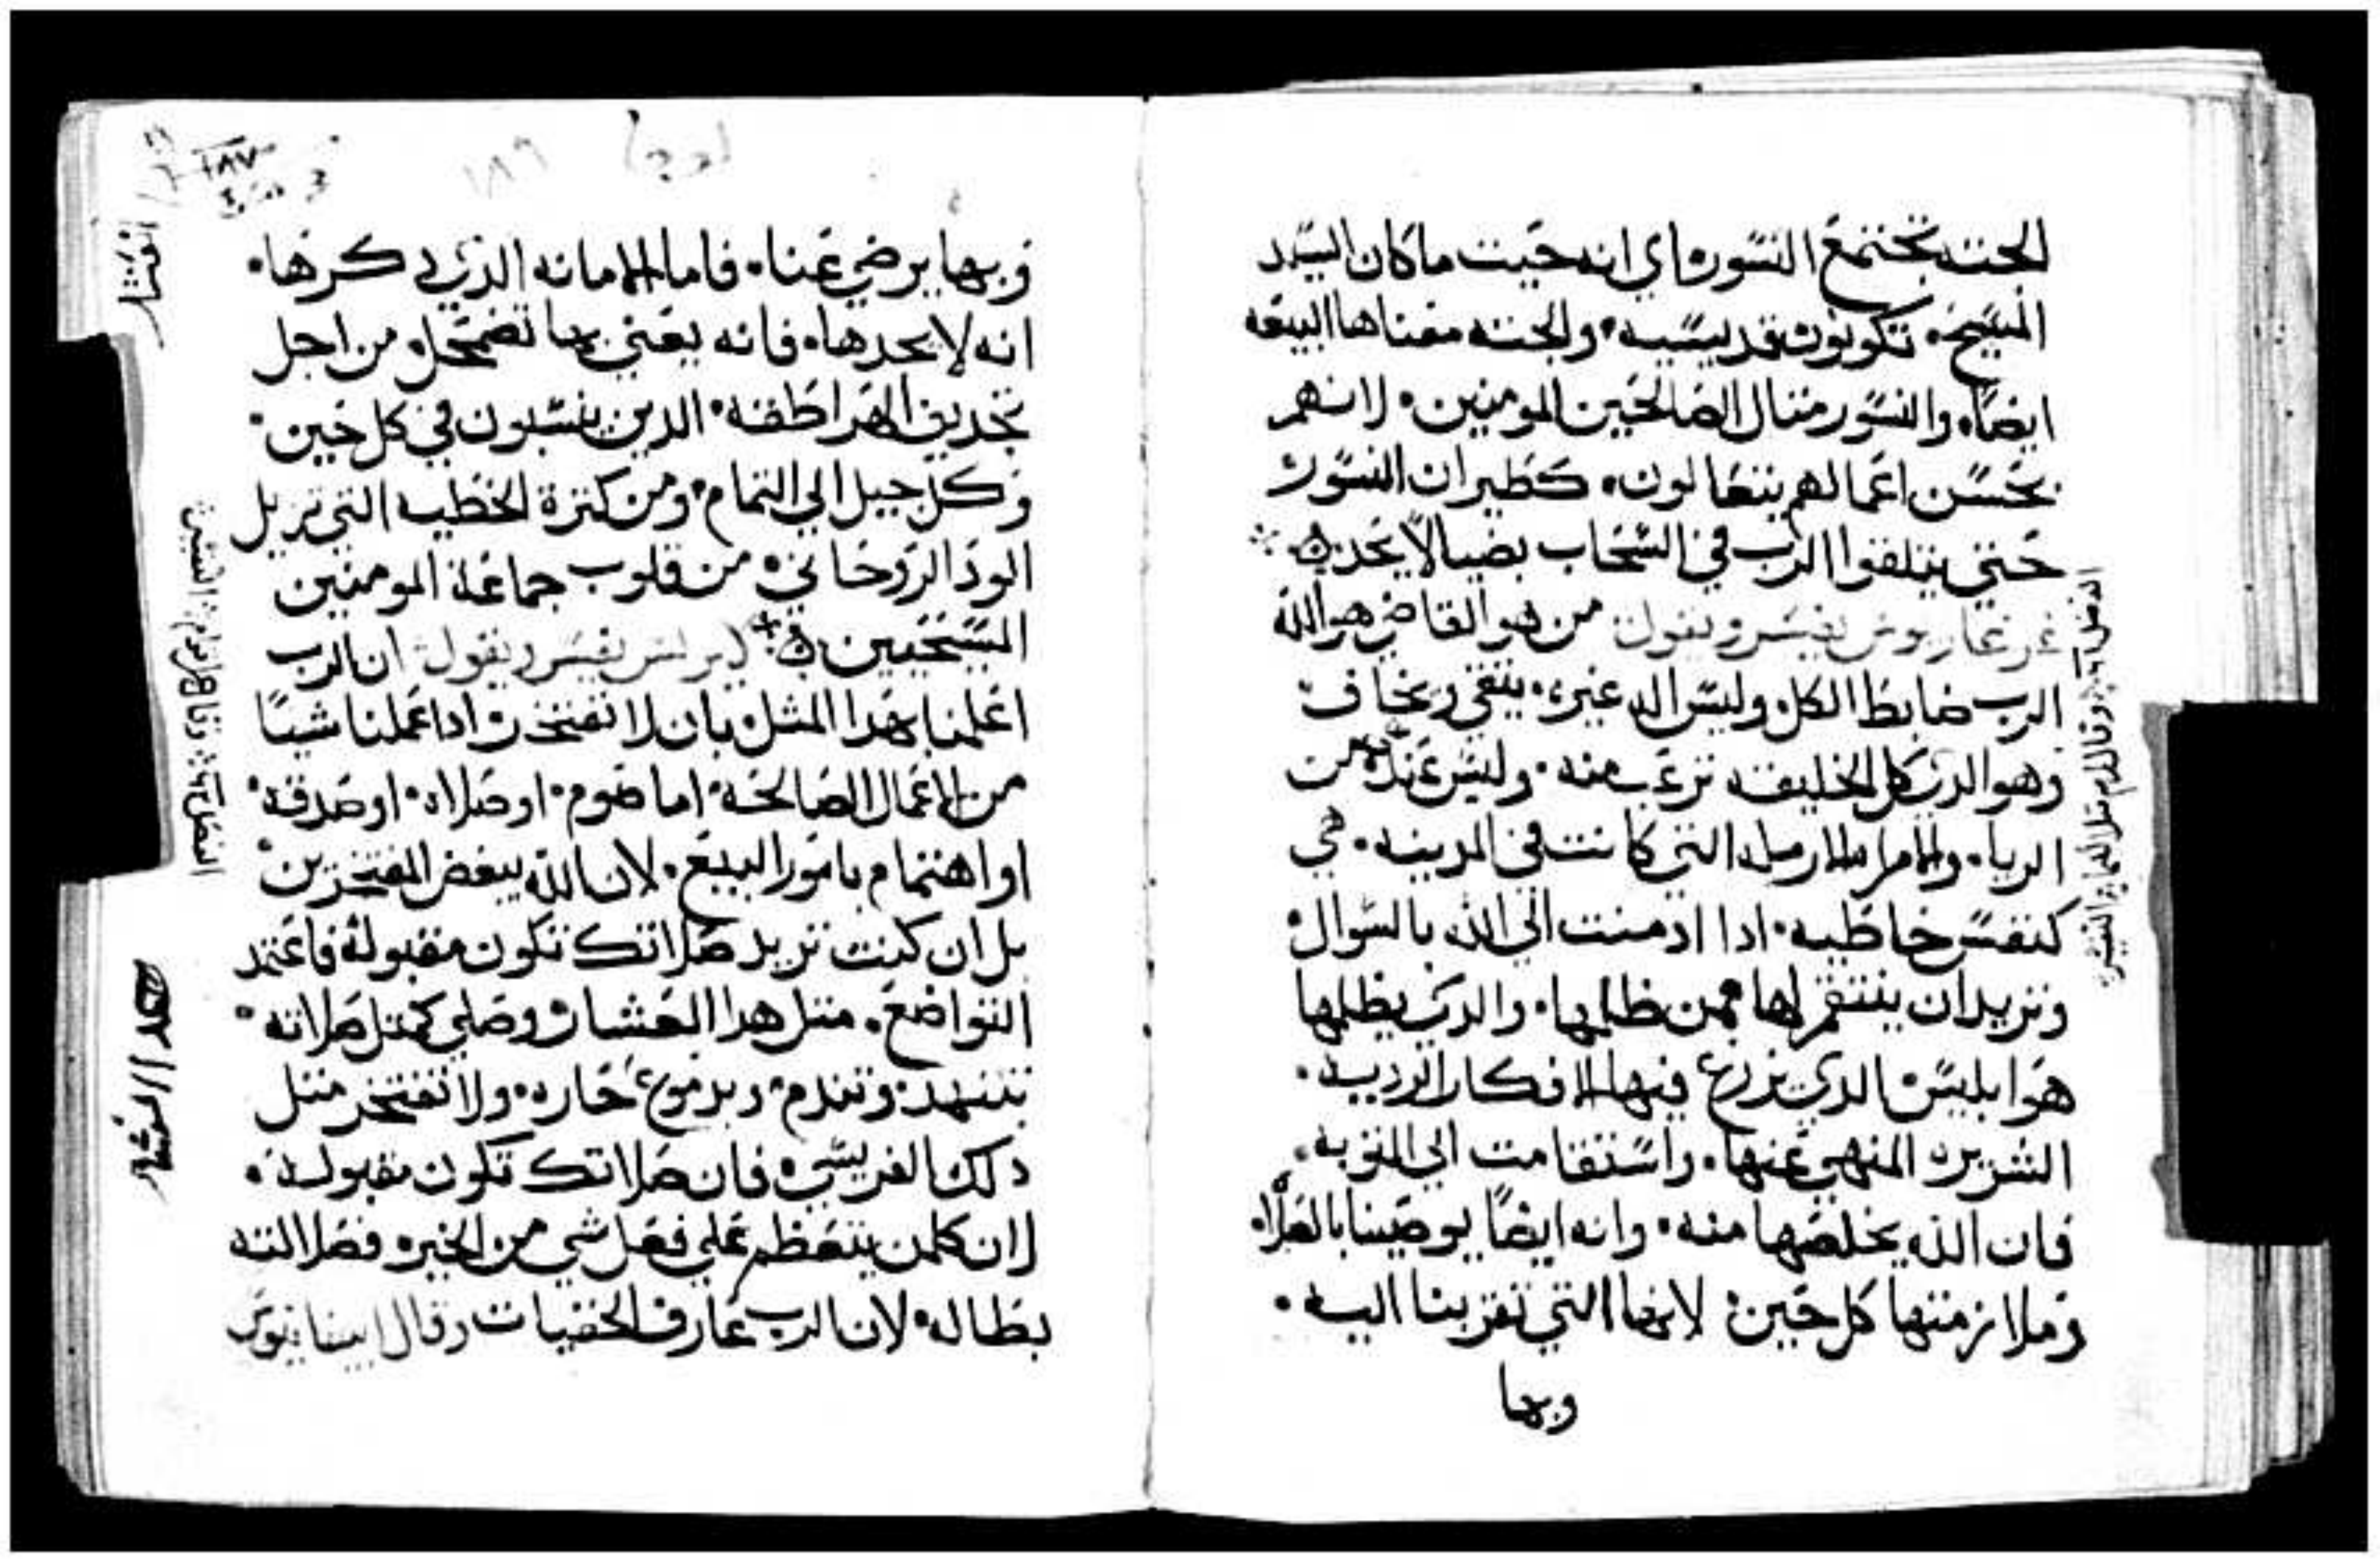 الجثه تجتمع النسور، اي انه حيت ما كان السيد
المسيح، تكون قديسيه، والجثه معناها البيعه
ايضاً، والنسور متال الصالحين المومنين، لانهم
بحسن اعمالهم يتعالون، كطيران النسور،
حتي يتلقوا الرب في السحاب بضيا لا يحد،
غريغاريوس يفسر ويقول: من هو القاضي هو الله
الرب ضابط الكل، وليس اله غيره، يتقي ويخاف
وهو الدي كل الخليقه ترعب منه، وليس عنده من
الريا، والامراه الارمله التي كانت في المدينه، هي
كنفس خاطيه، ادا ادمنت الي الله بالسوال،
وتريد ان ينتقم لها ممن ظلمها، والدي يظلمها
هو ابليس الدي يزرع فيها الافكار الرديه،
الشريره المنهي عنها، واستقامت الي التوبه،
فان الله يخلصها منه، وانه ايضاً يوصينا بالصلاه
وملازمتها كل حين، لانها التي تقربنا اليه،
وبها
الفصل وقال لهم مثلا التفسير
١٨٩
١٨٧
وبها يرضي عنا، فاما الامانه الذي دكرها،
انه لا يجدها، فانه يعني بها تضمحل، من اجل
تجديف الهراطقه، الدين ينسبون في كل حين،
وكل جيل الي التمام، ومن كترة الخطيه التي تزيل
الود الروحاني، من قلوب جماعة المومنين
المسيحيين، يفسر ويقول: ان الرب
اعلمنا بهدا المثل، بان لا نفتخر، ادا عملنا شياً
من الاعمال الصالحه، اما صوم، او صلاه، او صدقه،
او اهتمام بامور البيع، لان الله يبغض المفتخرين،
بل ان كنت تريد صلاتك تكون مقبوله، فاعتمد
التواضع، متل هدا العشار، وصلي كمتل صلاته،
بتنهد، وتندم، وبدموع حاره، ولا تفتخر متل
دلك الفريسي، فان صلاتك تكون مقبوله،
لان كلمن يتعظم علي فعل شي من الخير، فصلاته
بطاله، لان الرب عارف الخفيات وقال ايضا